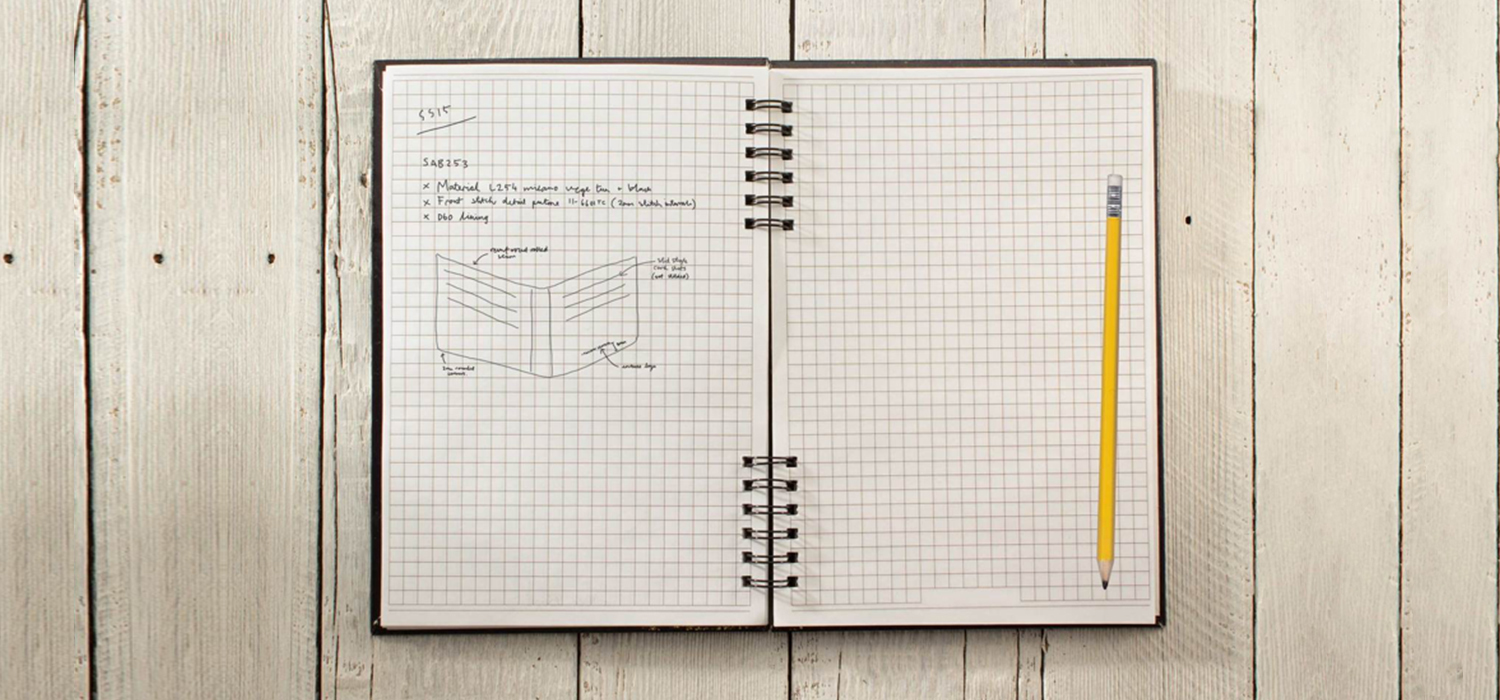 SS15
SAB253
x Material L254 milano vege tan - black
x Front stitch detail pantone 11-6601TC (2mm stitch intervals)
x D60 lining
seam
slid style
card slots
2mm rounded
corners
logo